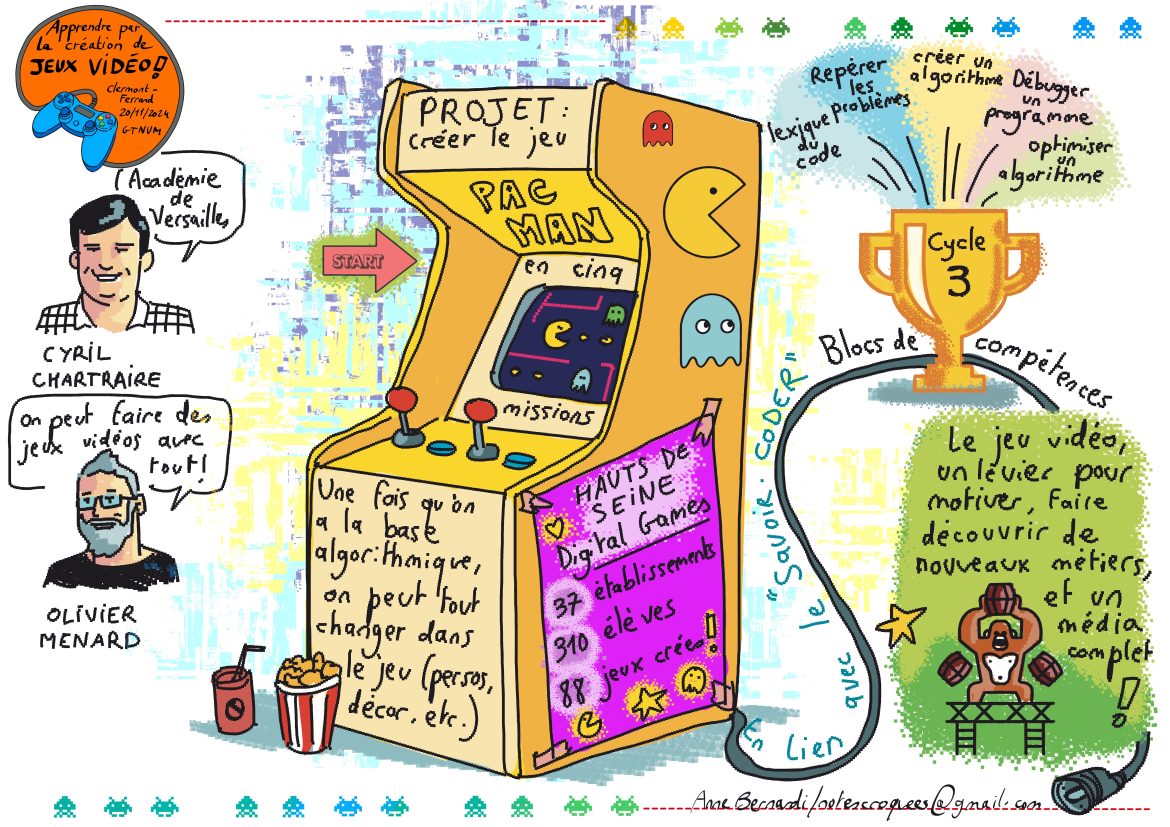 Apprendre par
la création de
JEUX VIDÉO!
Clermont-
Ferrand
20/11/2024
GTNUM
Académie
de
Versailles
CYRIL
CHARTRAIRE
on peut faire des
jeux vidéos avec
tout!
OLIVIER
MENARD
PROJET:
créer le jeu
PAC
MAN
START
en cinq
missions
Une fois qu'on
a la base
algorithmique,
on peut tout
changer dans
le jeu (persos,
décor, etc.)
HAUTS DE
SEINE
Digital Games
37 établissements
310 élèves
88 jeux créés!
En lien avec le "Savoir. CODER"
lexique
du
code
Repérer
les
problèmes
créer un
algorithme
Débugger
un
programme
optimiser
un
algorithme
Cycle
3
Blocs de compétences
Le jeu vidéo,
un lévier pour
motiver, faire
découvrir de
nouveaux métiers,
et un
média
complet
!
Anne Bernardi/notescroquees@gmail.com